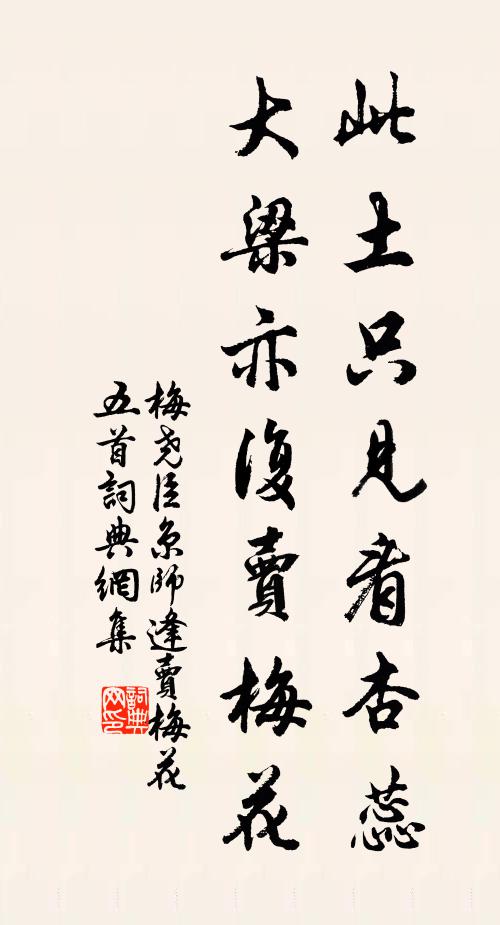 此土只見看杏蕊
大梁亦復賣梅花
梅堯臣京師逢賣梅花
五首詞典網集
詞典
网印